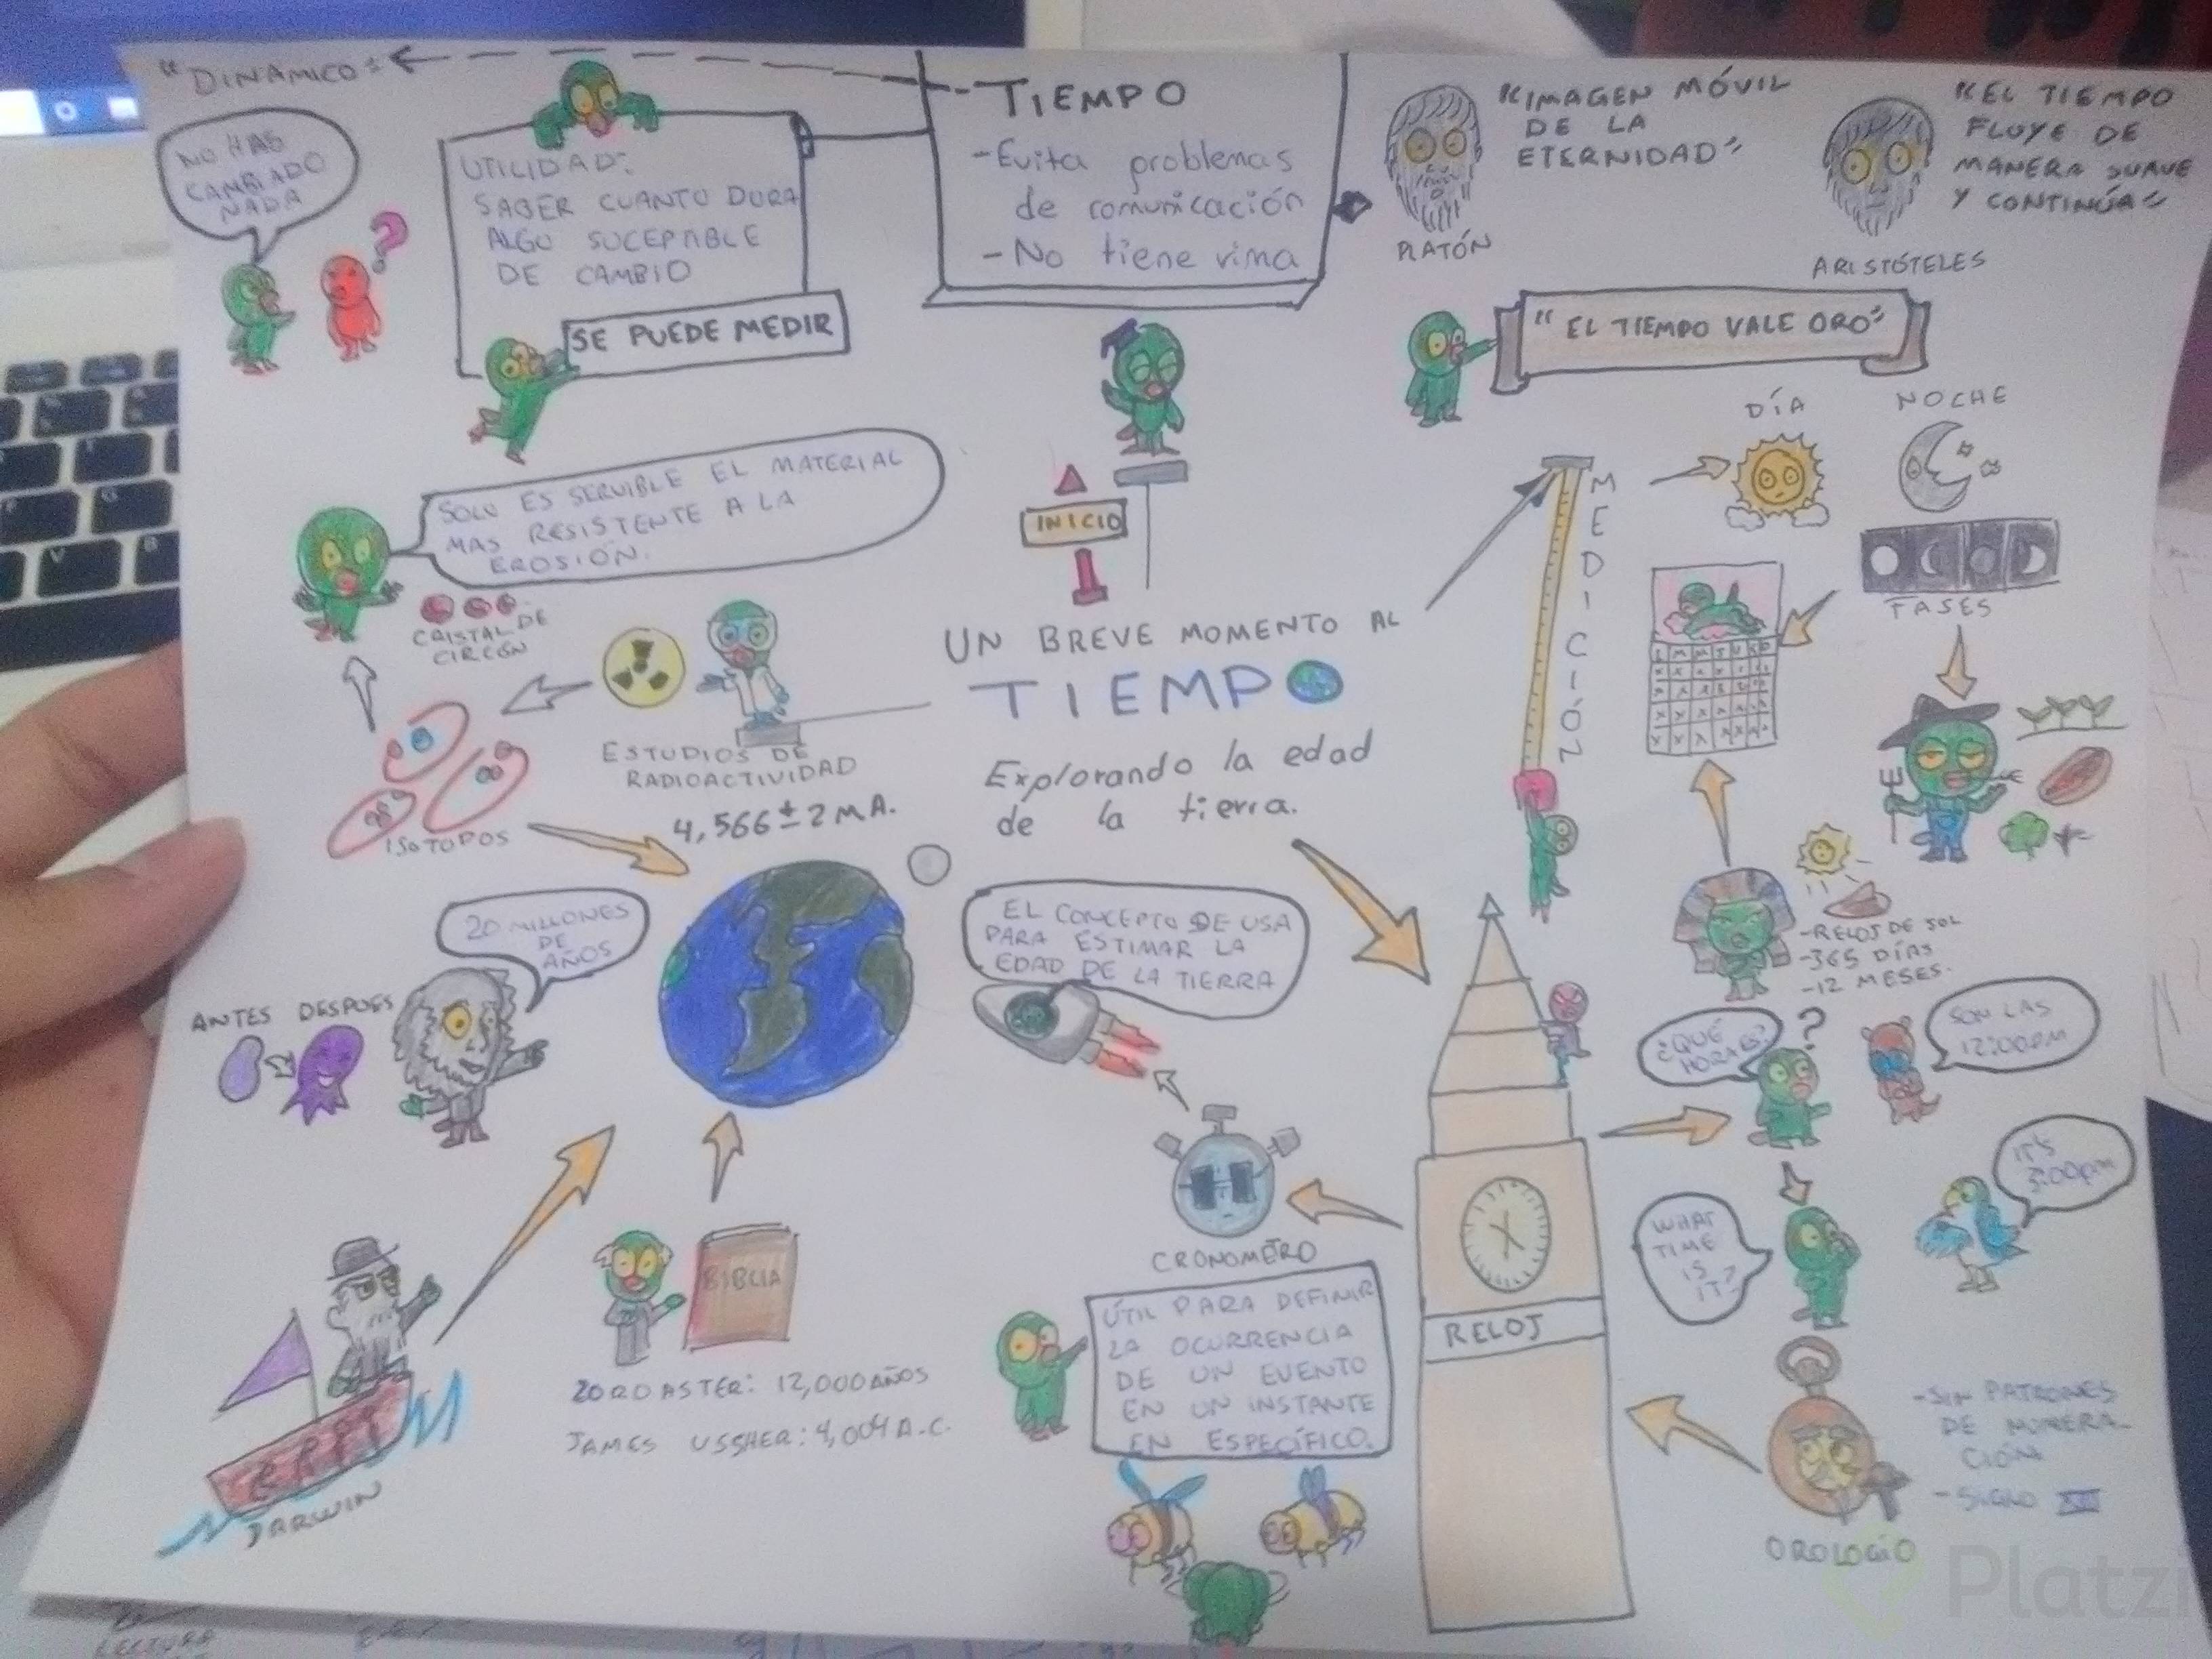 "DINÁMICO"
NO HAS
CAMBIADO
NADA
?
UTILIDAD:
SABER CUANTO DURA
ALGO SUCEPTABLE
DE CAMBIO
SE PUEDE MEDIR
TIEMPO
-Evita problemas
de comunicación
-No tiene rima
"IMAGEN MÓVIL
DE LA
ETERNIDAD"
PLATÓN
"EL TIEMPO
FLUYE DE
MANERA SUAVE
Y CONTINÚA"
ARISTÓTELES
"EL TIEMPO VALE ORO"
SOLO ES SERVIBLE EL MATERIAL
MAS RESISTENTE A LA
EROSIÓN.
CRISTAL DE
CIRCÓN
ISOTOPOS
ESTUDIOS DE
RADIOACTIVIDAD
4,566 ± 2 M A.
INICIO
UN BREVE MOMENTO AL
TIEMPO
Explorando la edad
de la tierra.
MEDICIÓN
DÍA
NOCHE
FASES
-RELOJ DE SOL
-365 DÍAS
-12 MESES.
20 MILLONES
DE
AÑOS
ANTES DESPUES
EL CONCEPTO SE USA
PARA ESTIMAR LA
EDAD DE LA TIERRA
¿QUÉ
HORA ES?
?
SON LAS
12:00PM
WHAT
TIME
IS
IT?
IT'S
3:00pm
CRONOMETRO
ÚTIL PARA DEFINIR
LA OCURRENCIA
DE UN EVENTO
EN UN INSTANTE
EN ESPECÍFICO.
RELOJ
BIBLIA
ZOROASTER: 12,000 AÑOS
JAMES USSHER: 4,004 A.C.
DARWIN
-Sin PATRONES
DE NUMERA-
CIÓN
-SIGLO
OROLOGIO
Platzi
LECTURA